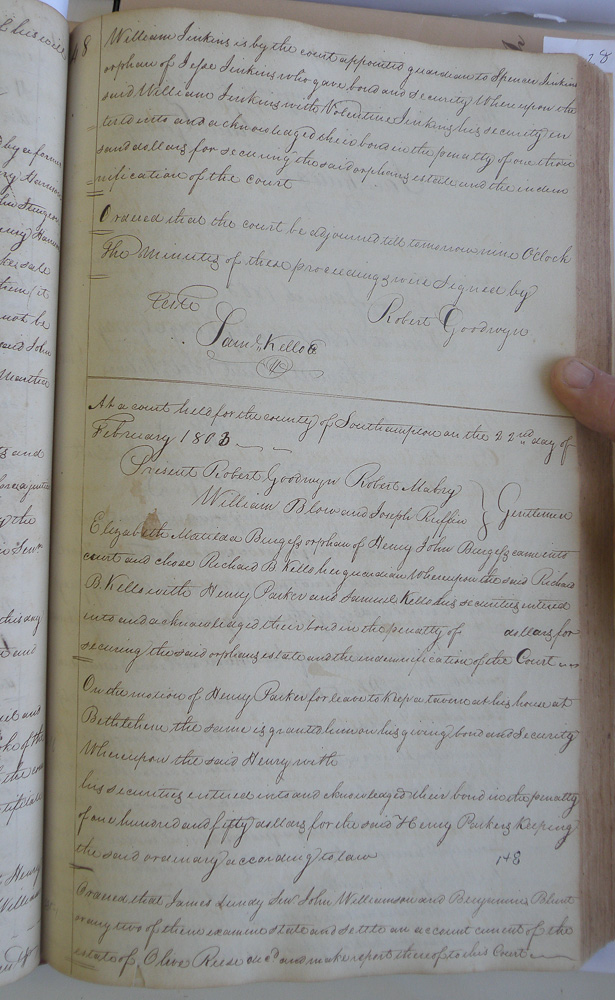 48
William Jinkins is by the court appointed guardian to Spencer Jinkins
orphan of Jesse Jinkins who gave bond and security Whereupon the
said William Jinkins with Valentine Jinkins his security en
tered into and acknowledged their bond in the penalty of one thou
sand dollars for securing the said orphans estate and the indem
nification of the court
Ordered that the court be adjourned till tomorrow nine OClock
The Minutes of these proceedings were signed by
Teste
Robert Goodwyn
Saml. Kello C
At a court held for the county of Southampton on the 22nd day of
February 1803
Present Robert Goodwyn Robert Mabry
William Blow and Joseph Ruffin
Gentlemen
Elizabeth Matilda Burgess orphan of Henry John Burgess came into
court and chose Richard B. Kello her guardian Whereupon the said Richard
B. Kello with Henry Parker and Samuel Kello his securities entered
into and acknowledged their bond in the penalty of dollars for
securing the said orphans estate and the indemnification of the Court
On the motion of Henry Parker for leave to keep a tavern at his house at
Bethlehem the same is granted him on his giving bond and security
Whereupon the said Henry with
his securities entered into and acknowledged their bond in the penalty
of one hundred and fifty dollars for the said Henry Parkers keeping
the said ordinary according to law
148
Ordered that James Lundy Senr John Williamson and Benjamin Blunt
or any two of them examine state and settle an account current of the
estate of Olive Reese decd and make report thereof to this Court